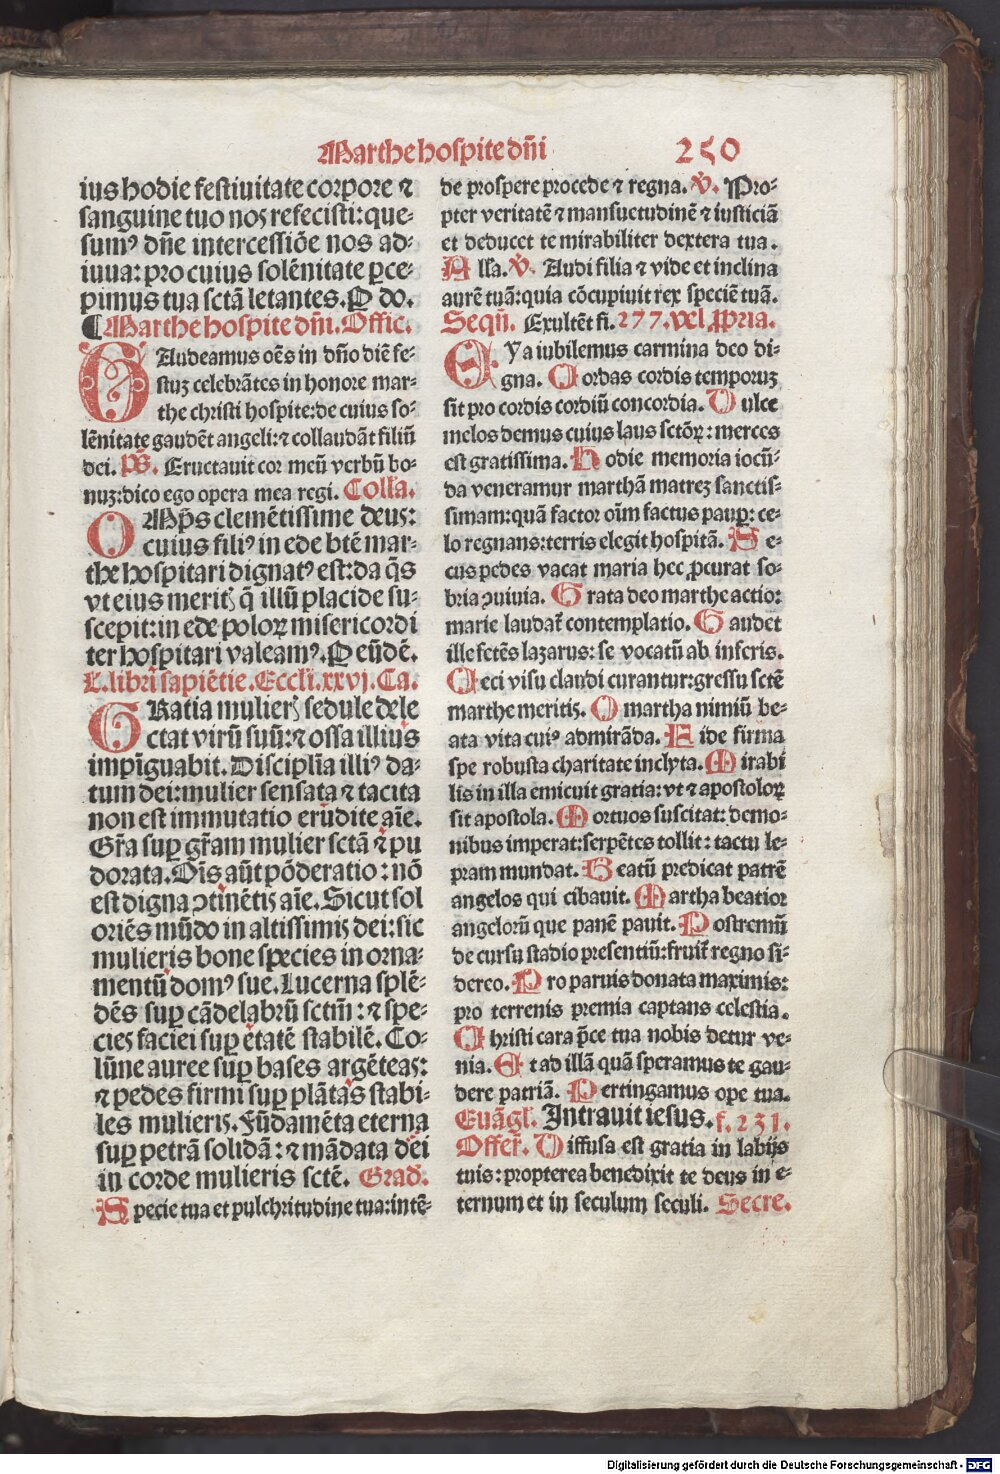 Marthe hospite dn̄i 250
ius hodie festiuitate corpore ⁊
sanguine tuo noꝫ refecisti: que-
sumꝰ dn̄e intercessiōe nos ad-
iuua: pro cuius solēnitate ꝑce-
pimus tua sctā letantes. P do.
¶ Marthe hospite dn̄i. Offic.
GAudeamus oēs in dn̄o diē fe-
stuꝫ celebrātes in honore mar-
the christi hospite: de cuius so-
lēnitate gaudēt angeli: ⁊ collaudāt filiū
dei. p̄s. Eructauit cor meū verbū bo-
nuꝫ: dico ego opera mea regi. Coll'a.
OMp̄s clemētissime deus:
cuius filiꝰ in ede btē mar-
the hospitari dignatꝰ est: da q̄s
vt eius meritꝭ q̄ illū placide su-
scepit: in ede poloꝝ misericordi
ter hospitari valeamꝰ. P eūdē.
L. libri sapiētie. Eccli. xxvj. Ca.
GRatia mulierꝭ sedule dele
ctat virū suū: ⁊ ossa illius
impīguabit. Disciplīa illiꝰ da-
tum dei: mulier sensata ⁊ tacita
non est immutatio erudite aīe.
Gr̄a suꝑ gr̄am mulier sctā ⁊ pu
dorata. Oīs aūt pōderatio: nō
est digna ꝯtinētis aīe. Sicut sol
oriēs mūdo in altissimis dei: sic
mulieris bone species in orna-
mentū domꝰ sue. Lucerna splē-
dēs suꝑ cādelabrū sctm̄: ⁊ spe-
cies faciei suꝑ etatē stabilē. Co-
lūne auree suꝑ bases argēteas:
⁊ pedes firmi suꝑ plātas stabi-
les mulieris. Fūdamēta eterna
suꝑ petrā solidā: ⁊ mādata dei
in corde mulieris sctē. Grad.
Specie tua et pulchritudine tua: intē-
de prospere procede ⁊ regna. V̄. Pro-
pter veritatē ⁊ mansuetudinē ⁊ iusticiā
et deducet te mirabiliter dextera tua.
All'a. V̄. Audi filia ⁊ vide et inclina
aurē tuā: quia cōcupiuit rex speciē tuā.
Seqn̄. Exultēt fi. 277. vel ꝓpria.
EYa iubilemus carmina deo di-
gna. Cordas cordis temporuꝫ
sit pro cordis cordiū concordia. Dulce
melos demus cuius laus sctōꝝ: merces
est gratissima. Hodie memoria iocū-
da veneramur marthā matreꝫ sanctis-
simam: quā factor oīm factus pauꝑ: ce-
lo regnans: terris elegit hospitā. Se-
cus pedes vacat maria hec ꝓcurat so-
bria ꝯuiuia. Grata deo marthe actio:
marie laudat̄ contemplatio. Gaudet
ille fctēs lazarus: se vocatū ab inferis.
Ceci visu claudi curantur: gressu sctē
marthe meritis. O martha nimiū be-
ata vita cuiꝰ admirāda. Fide firma
spe robusta charitate inclyta. Mirabi
lis in illa emicuit gratia: vt ⁊ apostoloꝝ
sit apostola. Mortuos suscitat: demo-
nibus imperat: serpētes tollit: tactu le-
pram mundat. Beatū predicat patrē
angelos qui cibauit. Martha beatior
angelorū que panē pauit. Postremū
de cursu stadio presentiū: fruit̄ regno si-
dereo. Pro paruis donata maximis:
pro terrenis premia captans celestia.
Christi cara p̄ce tua nobis detur ve-
nia. Et ad illā quā speramus te gau-
dere patriā. Pertingamus ope tua.
Euāgl. Intrauit iesus. f. 231.
Offer̄. Diffusa est gratia in labijs
tuis: propterea benedixit te deus in e-
ternum et in seculum seculi. Secre.
Digitalisierung gefördert durch die Deutsche Forschungsgemeinschaft - DFG